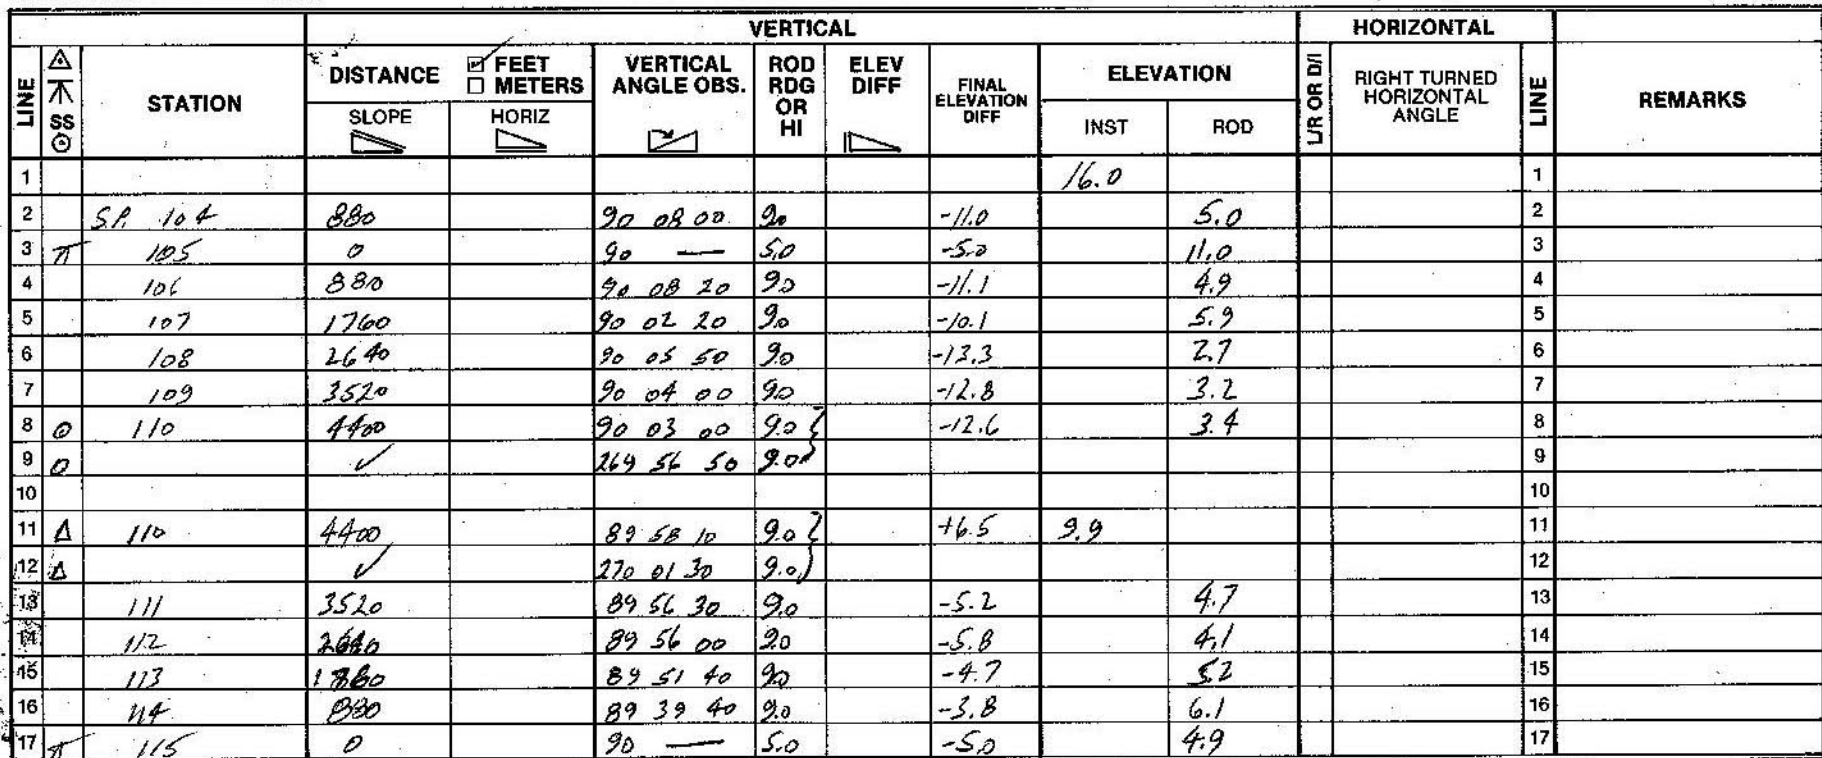 VERTICAL HORIZONTAL
LINE SS STATION DISTANCE FEET METERS VERTICAL ANGLE OBS. ROD RDG OR HI ELEV DIFF FINAL ELEVATION DIFF ELEVATION L/R OR D/I RIGHT TURNED HORIZONTAL ANGLE LINE REMARKS
SLOPE HORIZ INST ROD
1 16.0 1
2 S.P. 104 880 90 08 00 9.0 -11.0 5.0 2
3 π 105 0 90 — 5.0 -5.0 11.0 3
4 106 880 90 08 20 9.0 -11.1 4.9 4
5 107 1760 90 02 20 9.0 -10.1 5.9 5
6 108 2640 90 05 50 9.0 -13.3 2.7 6
7 109 3520 90 04 00 9.0 -12.8 3.2 7
8 110 4400 90 03 00 9.0 -12.6 3.4 8
9 ✓ 269 56 50 9.0 9
10 10
11 Δ 110 4400 89 58 10 9.0 +6.5 9.9 11
12 Δ ✓ 270 01 30 9.0 12
13 111 3520 89 56 30 9.0 -5.2 4.7 13
14 112 2640 89 56 00 9.0 -5.8 4.1 14
15 113 89 51 40 9.0 -4.7 5.2 15
16 114 880 89 39 40 9.0 -3.8 6.1 16
17 π 115 0 90 — 5.0 -5.0 4.9 17